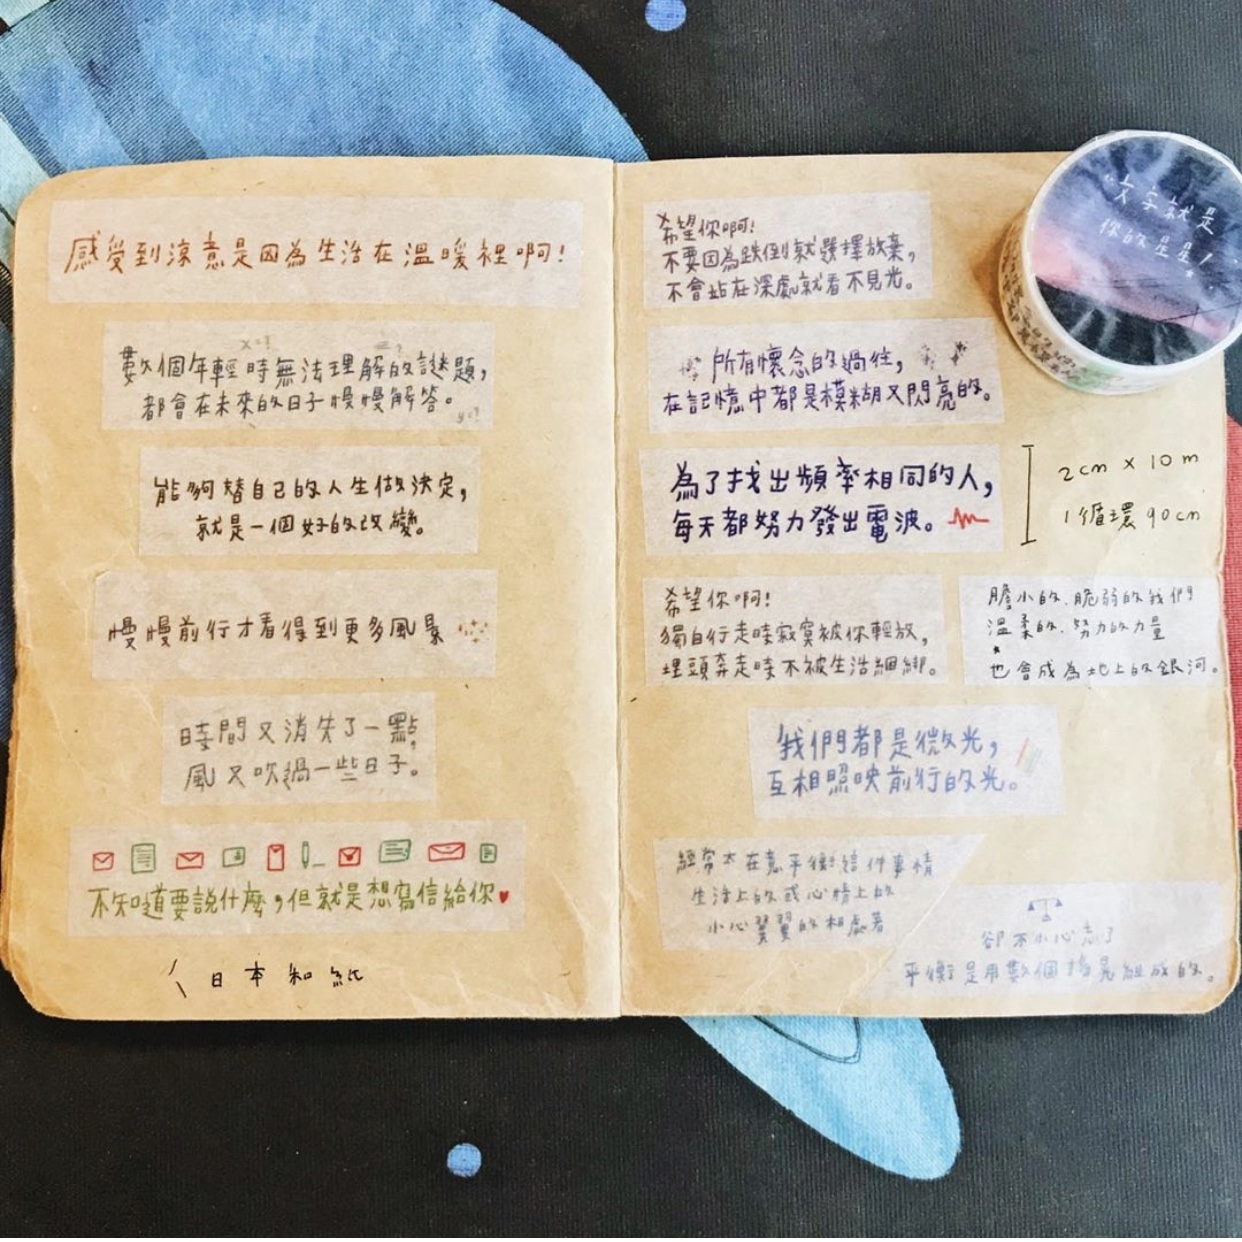 感受到涼意是因為生活在溫暖裡啊!
x=?
數個年輕時無法理解的謎題,
都會在未來的日子慢慢解答。
y=?
能夠替自己的人生做決定,
就是一個好的改變。
慢慢前行才看得到更多風景
時間又消失了一點,
風又吹過一些日子。
不知道要說什麼,但就是想寫信給你♥
日本和紙
希望你啊!
不要因為跌倒就選擇放棄,
不會站在深處就看不見光。
所有懷念的過往,
在記憶中都是模糊又閃亮的。
為了找出頻率相同的人,
每天都努力發出電波。
希望你啊!
獨自行走時寂寞被你輕放,
埋頭奔走時不被生活綑綁。
膽小的、脆弱的我們
溫柔的、努力的力量
也會成為地上的銀河。
我們都是微光,
互相照映前行的光。
經常在意平衡這件事情
生活上的或心情上的
小心翼翼的相處著
卻不小心忘了
平衡是用數個搖晃組成的。
"文字就是
你的星星!
2cm x 10m
1循環 90cm